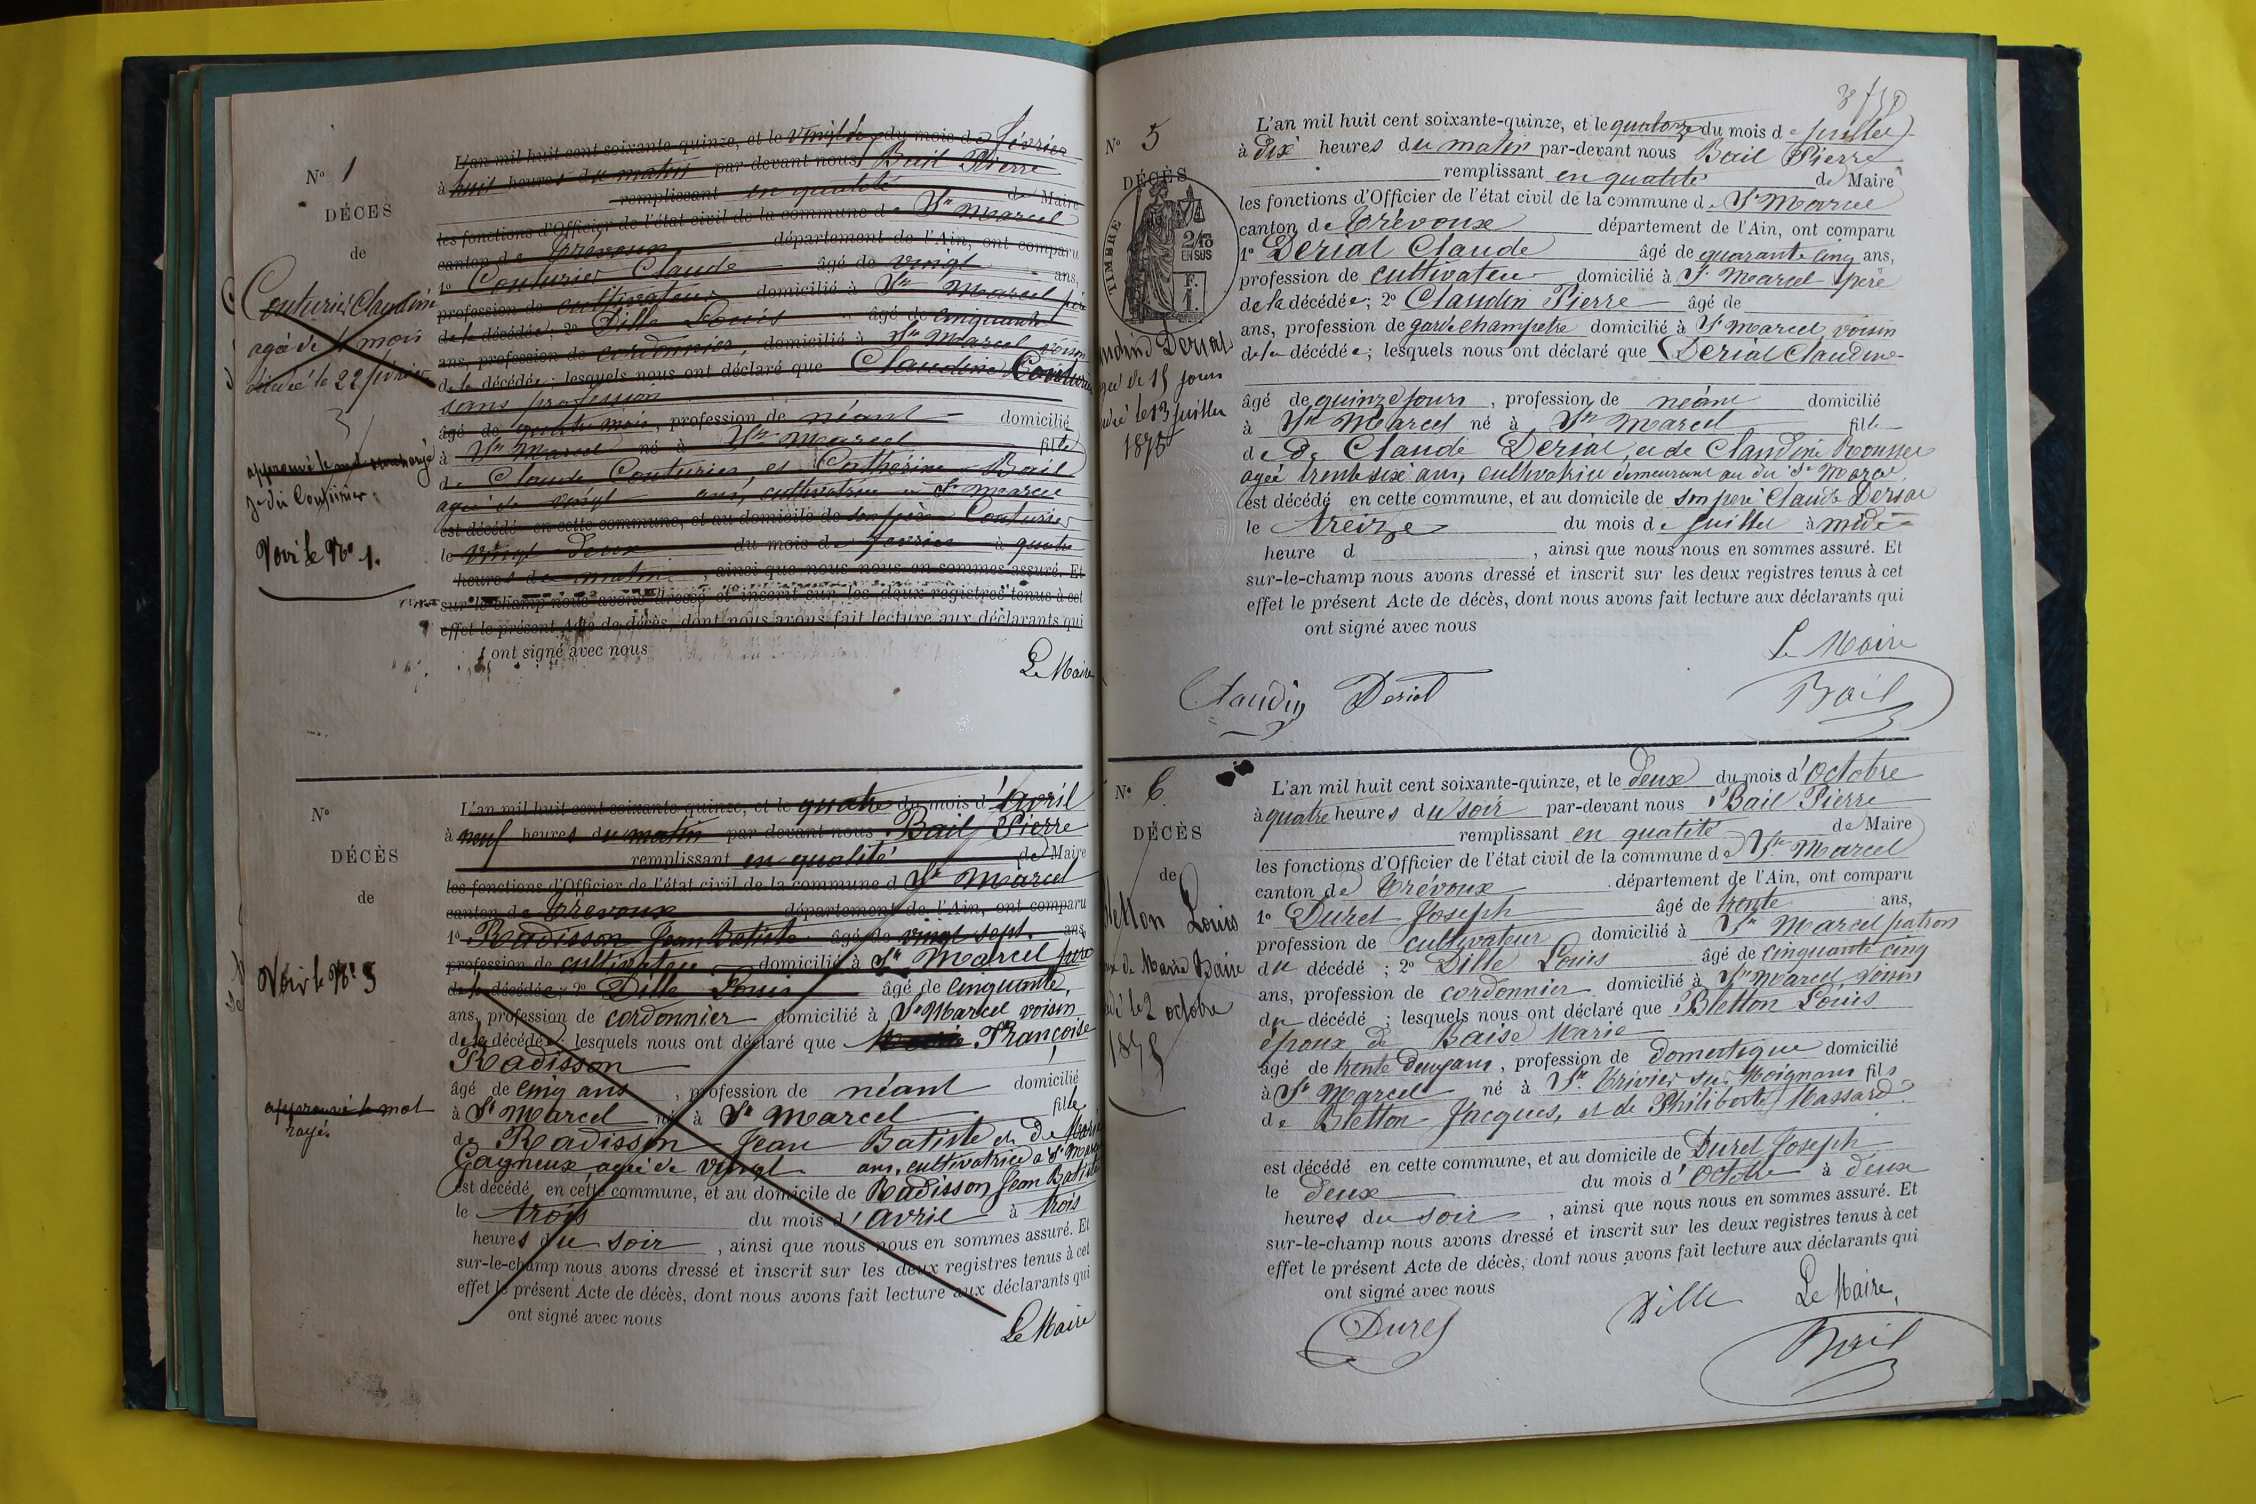 N° 1
DÉCÈS
de
Couturier Claudine
agée de 4 mois
décédé le 22 février
approuvé le mot surchargé
je dis Couturier.
Voir le N° 1.
L'an mil huit cent soixante-quinze, et le vingt du mois de février
à huit heures du matin par-devant nous Bail Pierre
remplissant en qualité de Maire
les fonctions d'Officier de l'état civil de la commune de St Marcel
canton de Trévoux département de l'Ain, ont comparu
1° Couturier Claude âgé de vingt ans,
profession de cultivateur domicilié à St Marcel père
de la décédée; 2° Dille Louis âgé de cinquante
ans, profession de cordonnier, domicilié à St Marcel voisin
de la décédée; lesquels nous ont déclaré que Claudine Couturier
sans profession
âgé de quatre mois, profession de néant domicilié
à St Marcel né à St Marcel fille
de Claude Couturier et Cathérine Bail
agée de vingt ans, cultivatrice à St Marcel
est décédé en cette commune, et au domicile de son père Couturier
le vingt deux du mois de février à quatre
heures du matin, ainsi que nous nous en sommes assuré. Et
sur-le-champ nous avons dressé et inscrit sur les deux registres tenus à cet
effet le présent Acte de décès, dont nous avons fait lecture aux déclarants qui
ont signé avec nous
Le Maire
N°
DÉCÈS
de
Voir le N° 3
approuvé le mot
rayé.
L'an mil huit cent soixante-quinze, et le quatre du mois d'Avril
à neuf heures du matin par-devant nous Bail Pierre
remplissant en qualité de Maire
les fonctions d'Officier de l'état civil de la commune d St Marcel
canton de Trevoux département de l'Ain, ont comparu
1° Radisson Jean Batiste âgé de vingt sept ans,
profession de cultivateur domicilié à St Marcel père
de la décédée; 2° Dille Louis âgé de cinquante,
ans, profession de cordonnier domicilié à St Marcel voisin
de la décédée; lesquels nous ont déclaré que Françoise
Radisson
âgé de cinq ans, profession de néant domicilié
à St Marcel né à St Marcel fille
de Radisson Jean Batiste et de Marie
Gagneux agée de vingt ans, cultivatrice a St Marcel
est décédé en cette commune, et au domicile de Radisson Jean Batiste
le trois du mois d'avril à trois
heures du soir, ainsi que nous nous en sommes assuré. Et
sur-le-champ nous avons dressé et inscrit sur les deux registres tenus à cet
effet le présent Acte de décès, dont nous avons fait lecture aux déclarants qui
ont signé avec nous
Le Maire
N° 5
DÉCÈS
TIMBRE
2/10
EN SUS
F.
1.
Derial
de 15 jours
le 13 juillet
1875
L'an mil huit cent soixante-quinze, et le quatorze du mois de juillet
à dix heures du matin par-devant nous Bail Pierre
remplissant en qualité de Maire
les fonctions d'Officier de l'état civil de la commune de St Marcel
canton de Trévoux département de l'Ain, ont comparu
1° Derial Claude âgé de quarante cinq ans,
profession de cultivateur domicilié à St Marcel père
de la décédée; 2° Claudin Pierre âgé de
ans, profession de garde champetre domicilié à St Marcel voisin
de la décédée; lesquels nous ont déclaré que Derial Claudine
âgé de quinze jours, profession de néant domicilié
à St Marcel né à St Marcel fille
de de Claude Derial et de Claudine Rousset
agée trente six ans, cultivatrice demeurant au dit St Marcel
est décédé en cette commune, et au domicile de son père Claude Derial
le treize du mois de juillet à midi
heure d , ainsi que nous nous en sommes assuré. Et
sur-le-champ nous avons dressé et inscrit sur les deux registres tenus à cet
effet le présent Acte de décès, dont nous avons fait lecture aux déclarants qui
ont signé avec nous
Le Maire
Claudin Deriat Bail
N° 6
DÉCÈS
de
Bletton Louis
de Marie Baise
le 2 octobre
1875
L'an mil huit cent soixante-quinze, et le deux du mois d'Octobre
à quatre heures du soir par-devant nous Bail Pierre
remplissant en qualité de Maire
les fonctions d'Officier de l'état civil de la commune de St Marcel
canton de Trévoux département de l'Ain, ont comparu
1° Duret Joseph âgé de trente ans,
profession de cultivateur domicilié à St Marcel patron
du décédé; 2° Dille Louis âgé de cinquante cinq
ans, profession de cordonnier domicilié à St Marcel voisin
du décédé; lesquels nous ont déclaré que Bletton Louis
époux de Baise Marie
âgé de trente deux ans, profession de domestique domicilié
à St Marcel né à St Trivier sur Moignans fils
de Bletton Jacques, et de Philiberte Massard
est décédé en cette commune, et au domicile de Duret Joseph
le deux du mois d'Octobre à deux
heures du soir, ainsi que nous nous en sommes assuré. Et
sur-le-champ nous avons dressé et inscrit sur les deux registres tenus à cet
effet le présent Acte de décès, dont nous avons fait lecture aux déclarants qui
ont signé avec nous
Le Maire,
Duret Dille Bail